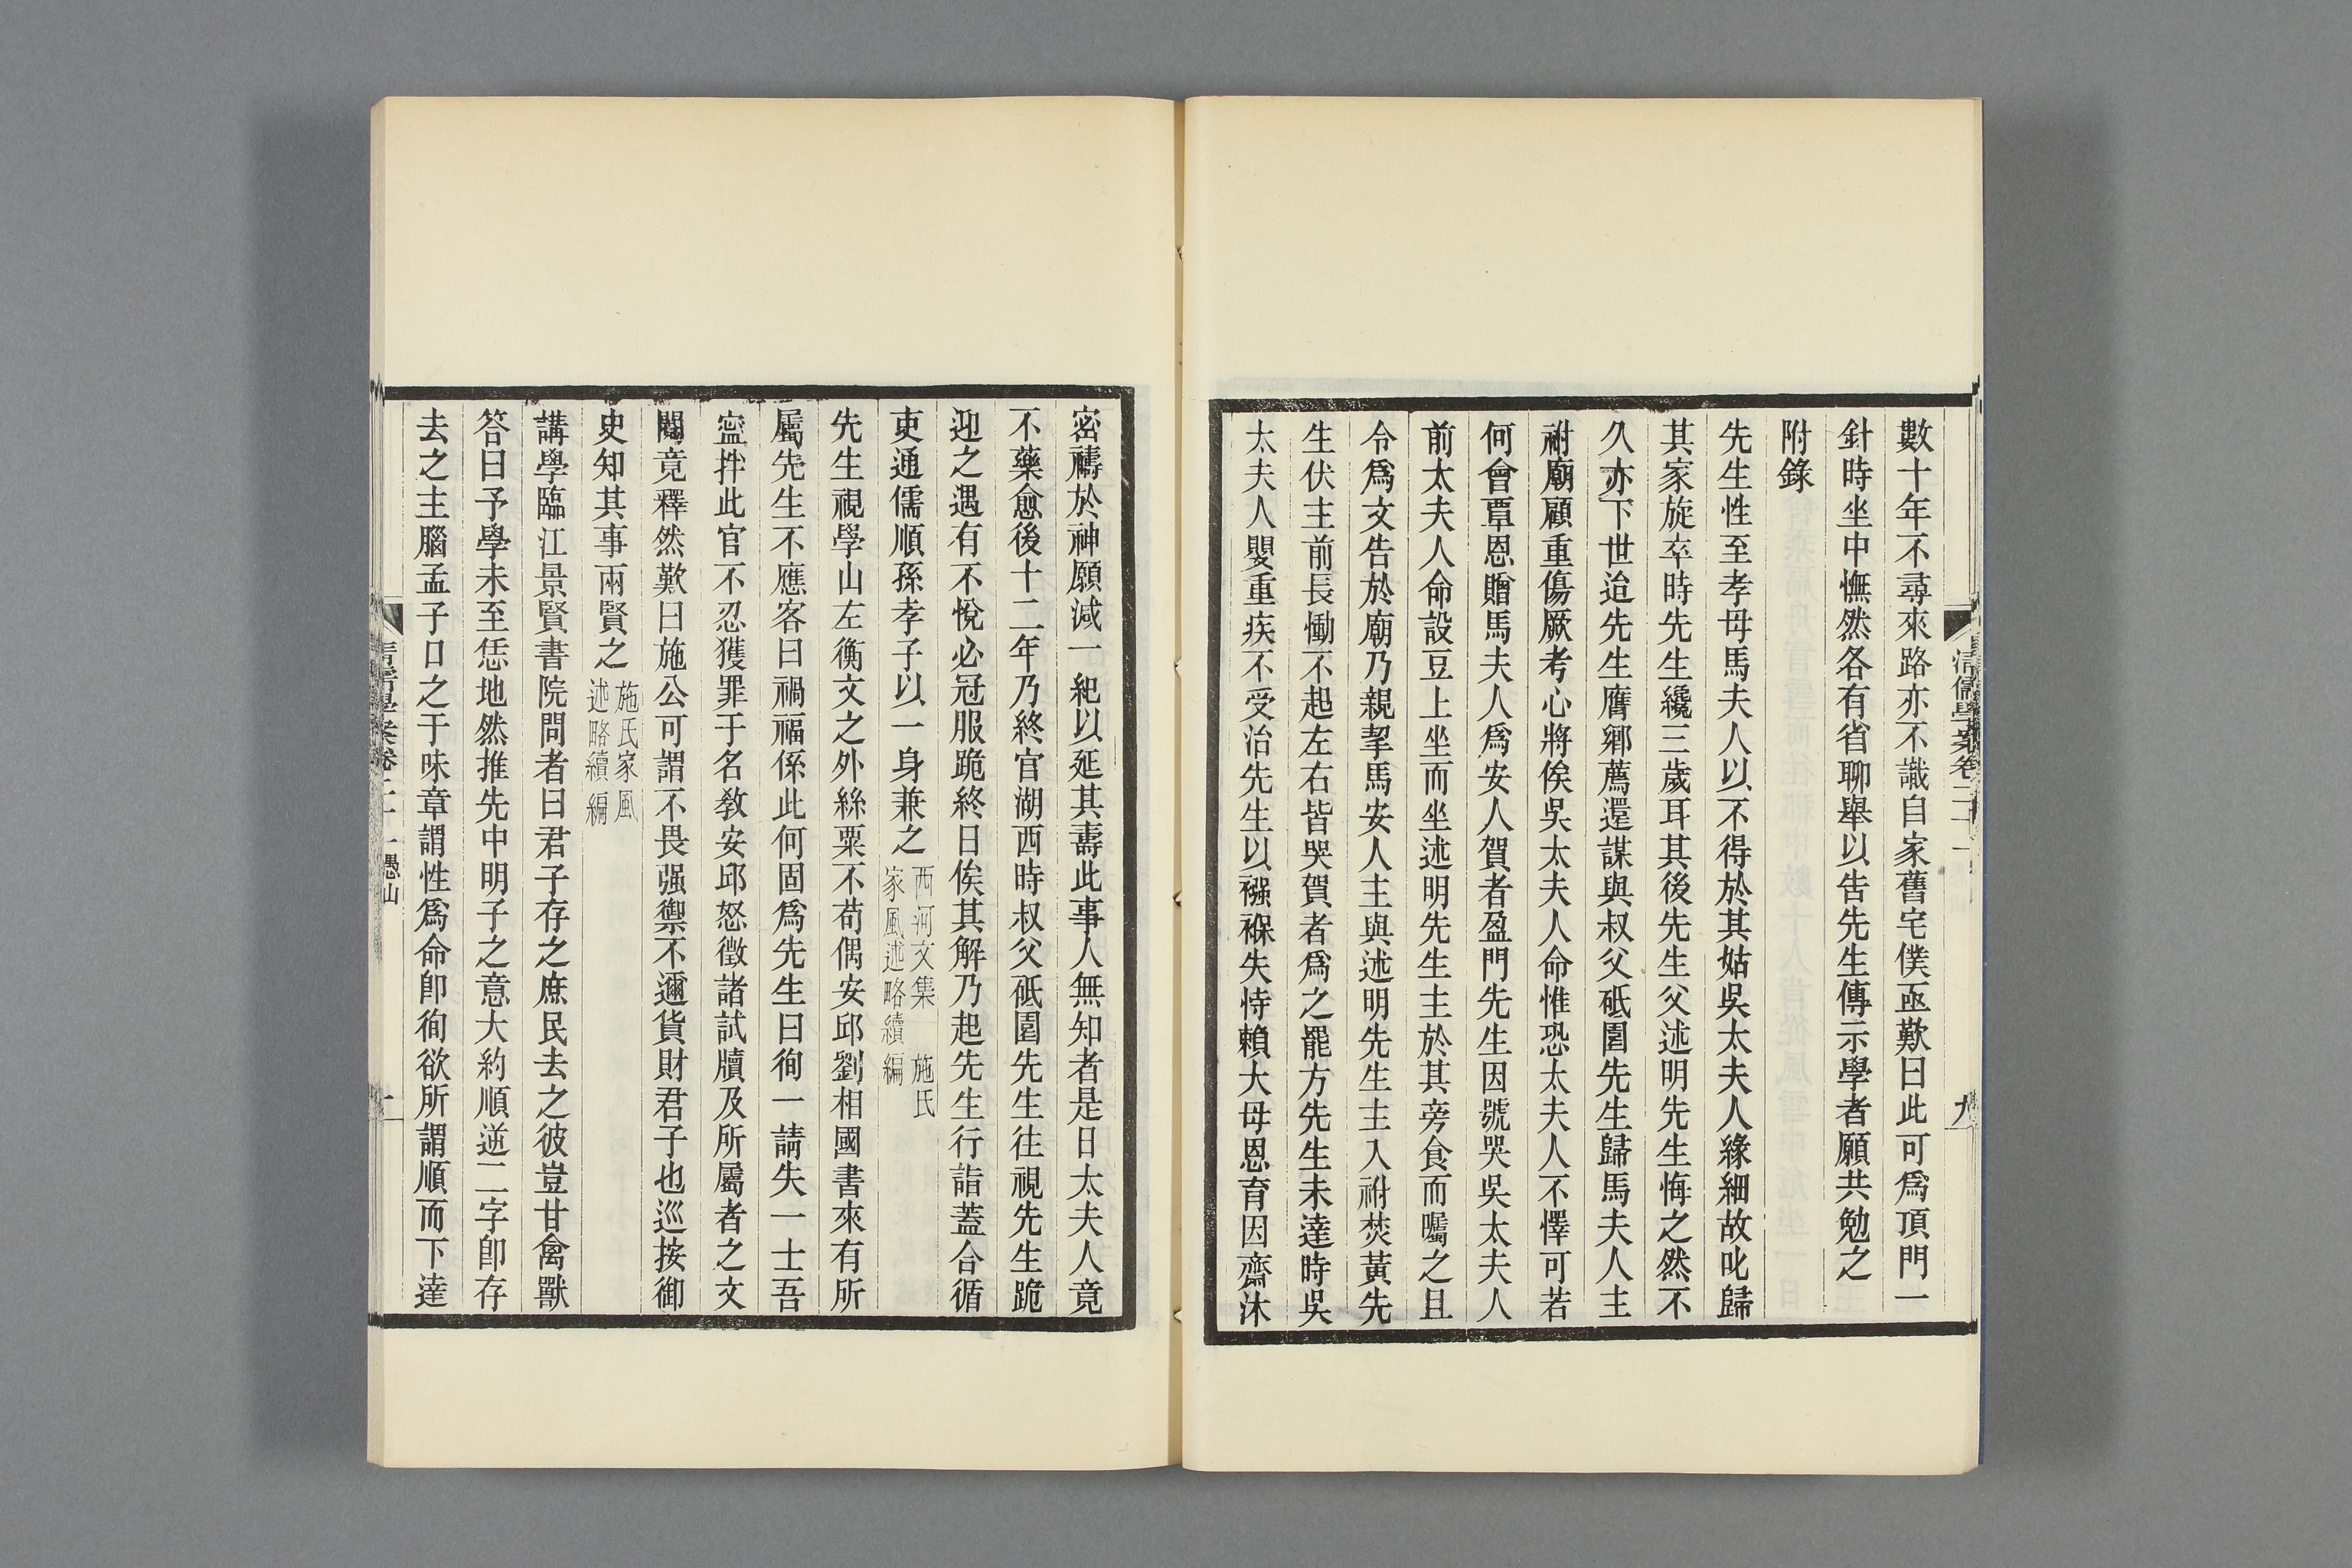 數十年不尋來路亦不識自家舊宅僕亟歎曰此可爲頂門一
針時坐中憮然各有省聊舉以告先生傳示學者願共勉之
附錄
先生性至孝母馬夫人以不得於其姑吳太夫人緣細故叱歸
其家旋卒時先生纔三歲耳其後先生父述明先生悔之然不
久亦下世迨先生膺鄉薦還謀與叔父砥園先生歸馬夫人主
祔廟顧重傷厥考心將俟吳太夫人命惟恐太夫人不懌可若
何會覃恩贈馬夫人爲安人賀者盈門先生因號哭吳太夫人
前太夫人命設豆上坐而坐述明先生主於其旁食而囑之且
令爲文告於廟乃親挈馬安人主與述明先生主入祔焚黃先
生伏主前長慟不起左右皆哭賀者爲之罷方先生未達時吳
太夫人嬰重疾不受治先生以襁褓失恃賴大母恩育因齋沐
清儒學案卷二十一
九
密禱於神願減一紀以延其壽此事人無知者是日太夫人竟
不藥愈後十二年乃終官湖西時叔父砥園先生往視先生跪
迎之遇有不悅必冠服跪終日俟其解乃起先生行詣蓋合循
吏通儒順孫孝子以一身兼之西河文集 施氏家風述略續編
先生視學山左衡文之外絲粟不苟偶安邱劉相國書來有所
屬先生不應客曰禍福係此何固爲先生曰徇一請失一士吾
寧拌此官不忍獲罪于名敎安邱怒徵諸試牘及所屬者之文
闈竟釋然歎曰施公可謂不畏强禦不邇貨財君子也巡按御
史知其事兩賢之施氏家風述略續編
講學臨江景賢書院問者曰君子存之庶民去之彼豈甘禽獸
答曰予學未至恁地然推先中明子之意大約順逆二字卽存
去之主腦孟子口之于味章謂性爲命卽徇欲所謂順而下達
清儒學案卷二十一 愚山